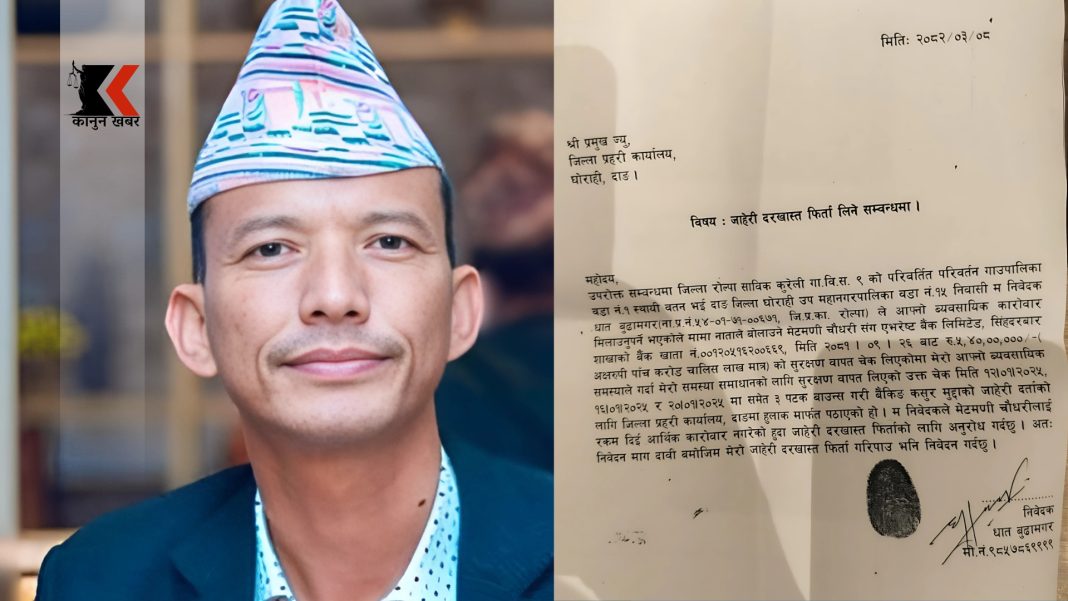 कानुन खबर
मितिः २०८२/०३/०८
श्री प्रमुख ज्यु,
जिल्ला प्रहरी कार्यालय,
घोराही, दाङ ।
विषय : जाहेरी दरखास्त फिर्ता लिने सम्वन्धमा ।
महोदय,
उपरोक्त सम्वन्धमा जिल्ला रोल्पा साविक कुरेली गा.वि.स. ९ को परिवर्तित परिवर्तन गाउपालिका
वडा नं.१ स्थायी वतन भई दाङ जिल्ला घोराही उप महानगरपालिका वडा नं.१५ निवासी म निवेदक
धात बुढामगर(ना.प्र.नं.५४-०१-७१-००६७१, जि.प्र.का. रोल्पा) ले आफ्नो ब्यवसायिक कारोवार
मिलाउनुपर्ने भएकोले मामा नाताले बोलाउने मेटमणी चौधरी संग एभरेष्ट बैंक लिमिटेड, सिंहदरबार
शाखाको बैंक खाता नं.००१२०५१६२००६६९, मिति २०८१ । ०९ । २६ बाट रु.५,४०,००,०००/-(
अक्षरुपी पाँच करोड चालिस लाख मात्र) को सुरक्षण वापत चेक लिएकोमा मेरो आफ्नो ब्यवसायिक
समस्याले गर्दा मेरो समस्या समाधानको लागि सुरक्षण वापत लिएको उक्त चेक मिति १२।०१।२०२५,
१६।०१।२०२५ र २०।०१।२०२५ मा समेत ३ पटक बाउन्स गरी बैकिङ कसुर मुद्दाको जाहेरी दर्ताको
लागि जिल्ला प्रहरी कार्यालय, दाङमा हुलाक मार्फत पठाएको हो । म निवेदकले मेटमणी चौधरीलाई
रकम दिई आर्थिक कारोवार नगरेको हुदा जाहेरी दरखास्त फिर्ताको लागि अनुरोध गर्दछु । अतः
निवेदन माग दावी बमोजिम मेरो जाहेरी दरखास्त फिर्ता गरिपाउ भनि निवेदन गर्दछु ।
निवेदक
धात बुढामगर
मो.नं.९८५७८६९१९९